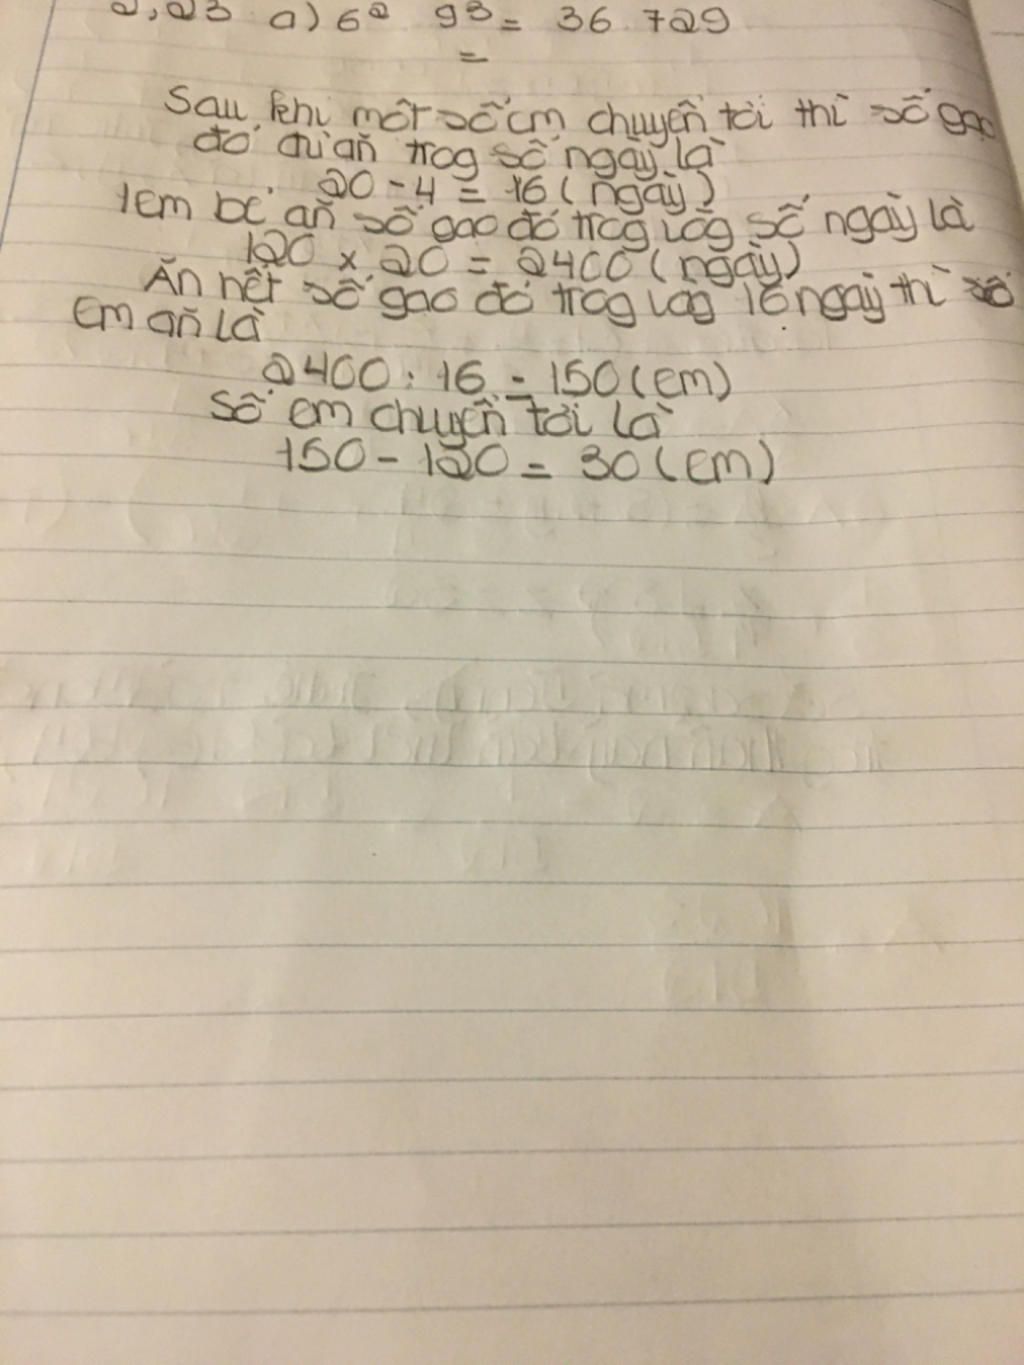 2,23 a) 6² 9³ = 36 729
=
Sau khi một số em chuyển tới thì số gạo
đó đủ ăn trog số ngày là
20 - 4 = 16 (ngày)
1 em bé ăn số gạo đó trog vòg số ngày là
120 x 20 = 2400 (ngày)
Ăn hết số gạo đó trog vòg 16 ngày thì số
em ăn là
2400 : 16 = 150 (em)
Số em chuyển tới là
150 - 120 = 30 (em)